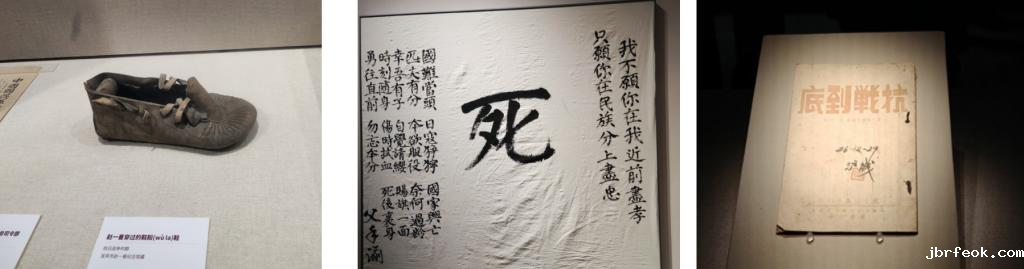 赵一曼穿过的靰鞡(wù la)鞋
抗日战争时期
我不願你在我近前盡孝
只願你在民族分上盡忠
死
國難當頭 日寇猙獰 國家興亡
匹夫有分 本欲服役 奈何過齡
幸吾有子 自覺請纓 賜旗一面
時刻隨身 傷時拭血 死後裹身
勇往直前 勿忘本分
父手諭
抗戰到底
jbrfeok.com